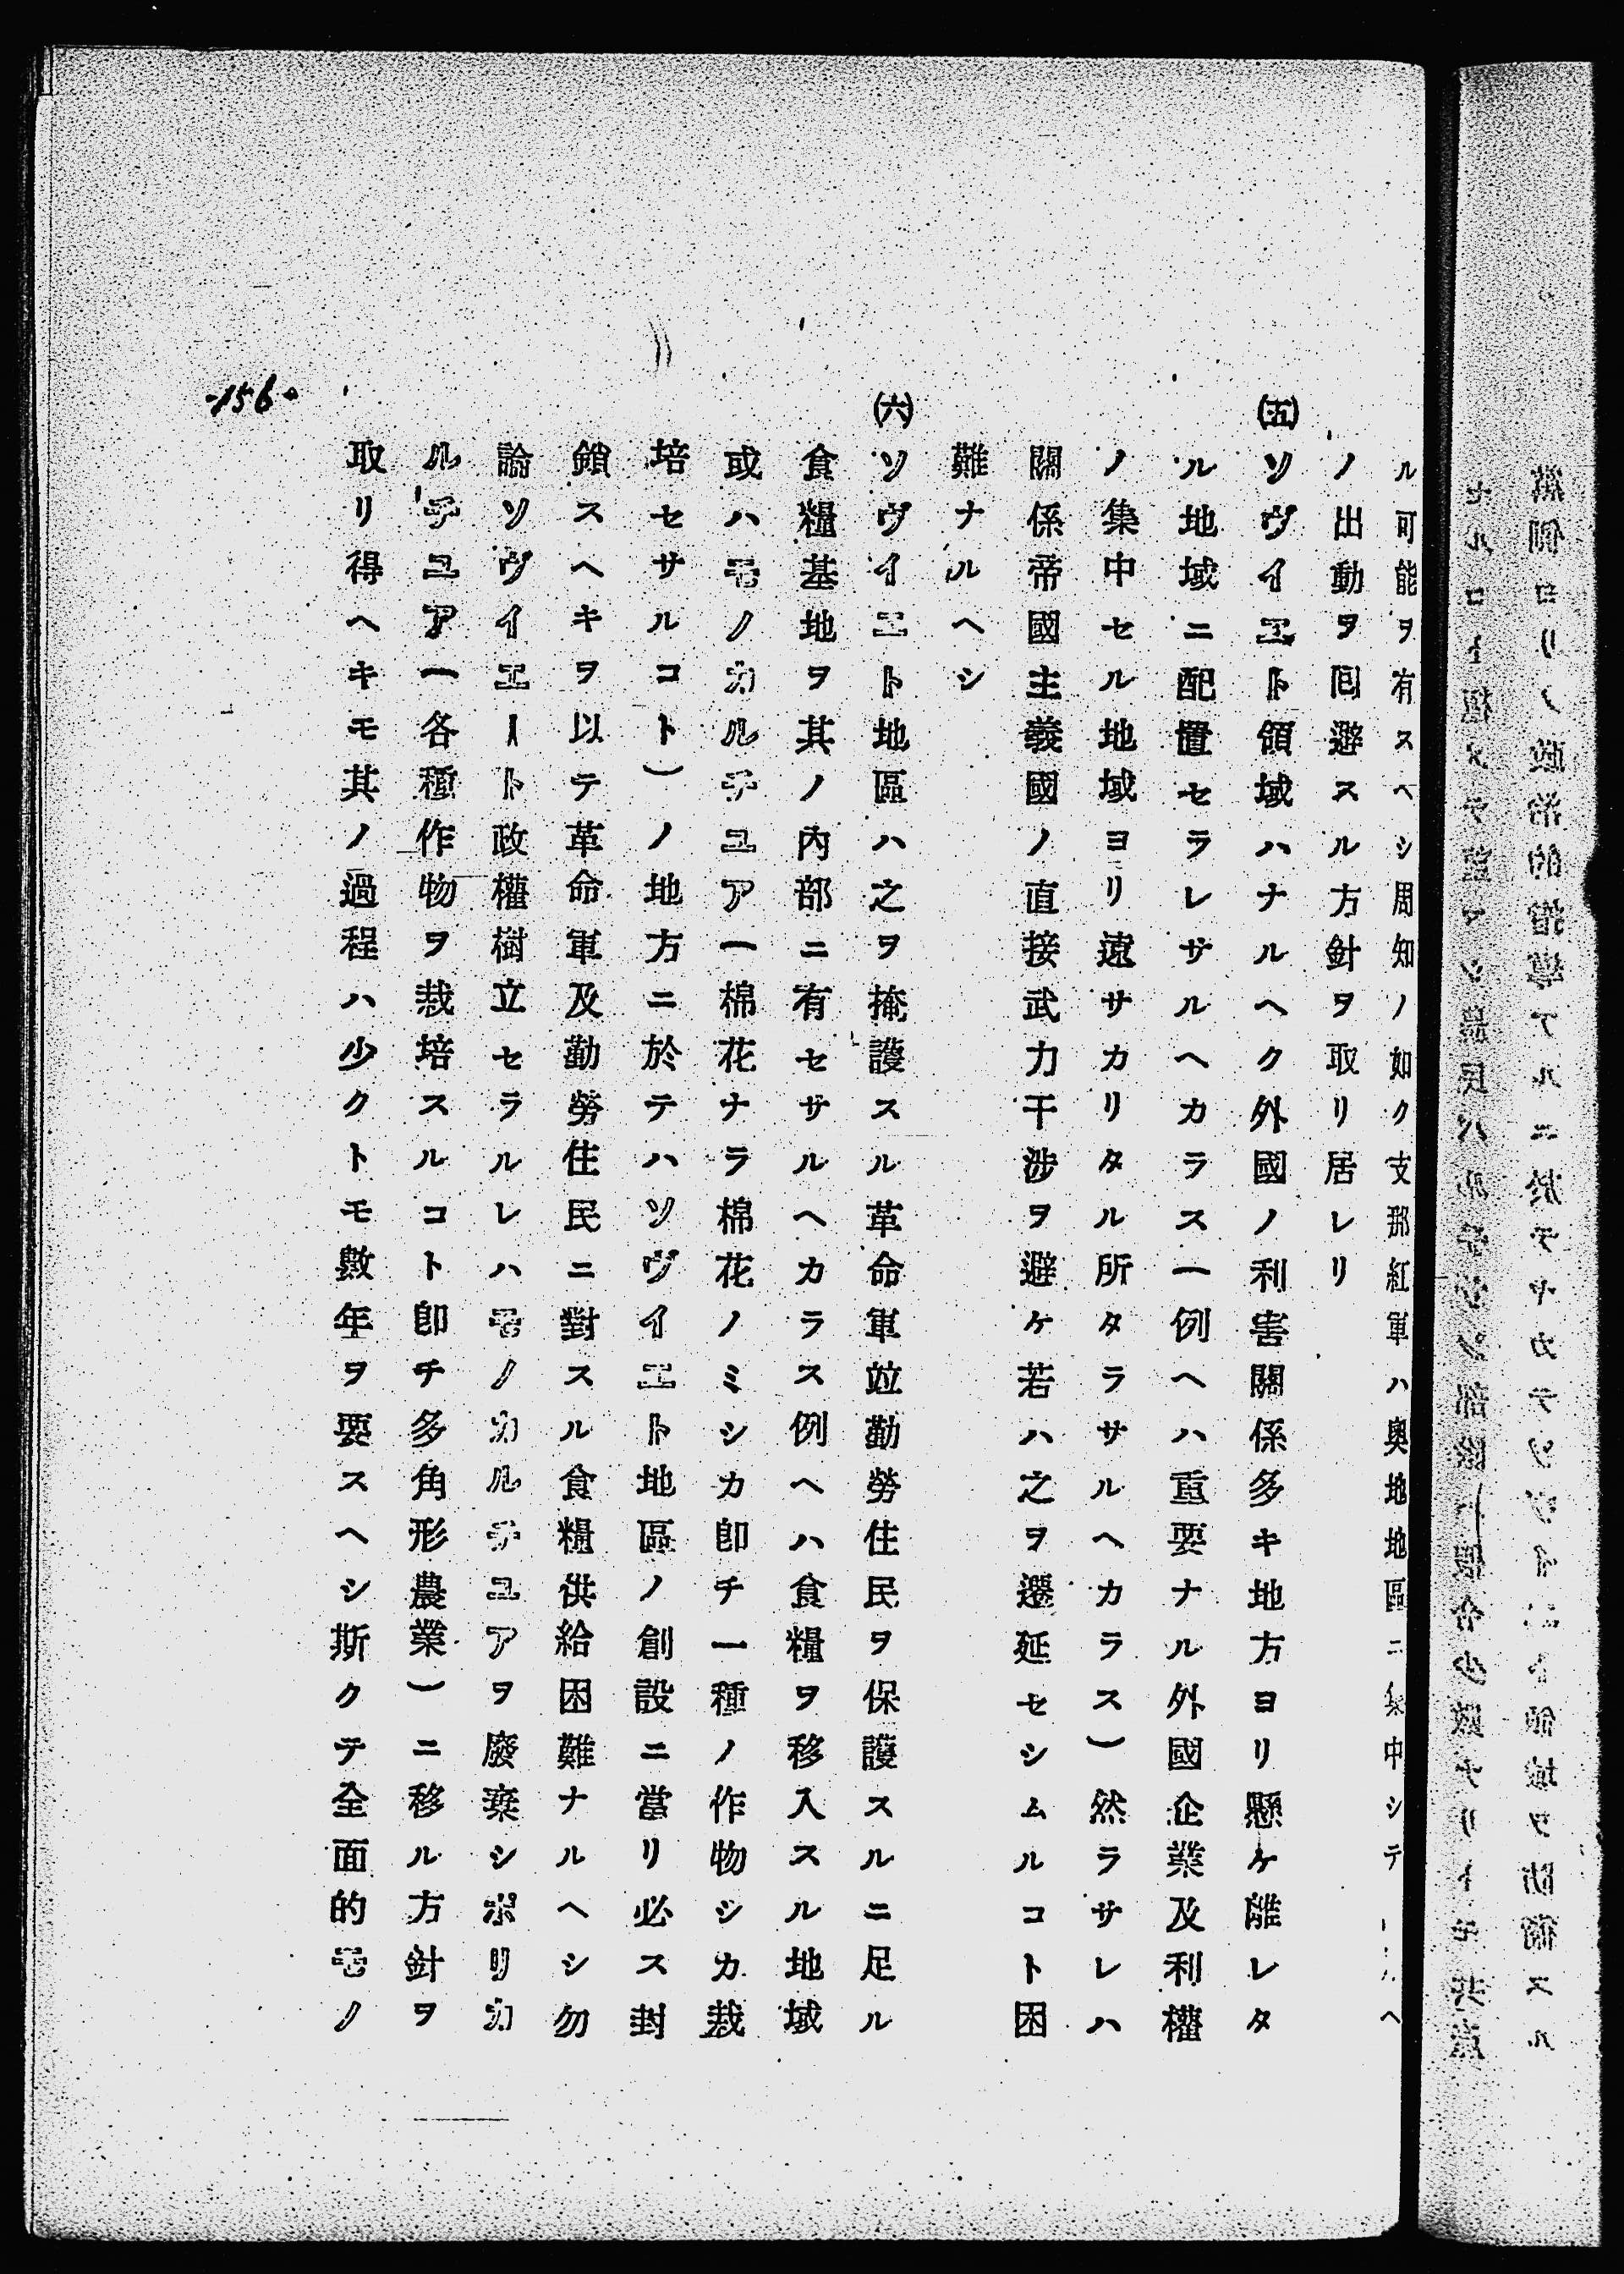 ル可能ヲ有スヘシ周知ノ如ク支那紅軍ハ奧地地區ニ集中シテ
ノ出動ヲ囘避スル方針ヲ取リ居レリ
㈤ソヴイエト領域ハナルヘク外國ノ利害關係多キ地方ヨリ懸ケ離レタ
ル地域ニ配置セラレサルヘカラス一例ヘハ重要ナル外國企業及利權
ノ集中セル地域ヨリ遠サカリタル所タラサルヘカラス)然ラサレハ
關係帝國主義國ノ直接武力干涉ヲ避ケ若ハ之ヲ遷延セシムルコト困
難ナルヘシ
㈥ソヴイエト地區ハ之ヲ掩護スル革命軍竝勤勞住民ヲ保護スルニ足ル
食糧基地ヲ其ノ內部ニ有セサルヘカラス例ヘハ食糧ヲ移入スル地域
或ハモノカルチユアー棉花ナラ棉花ノミシカ卽チ一種ノ作物シカ栽
培セサルコト)ノ地方ニ於テハソヴイエト地區ノ創設ニ當リ必ス封
鎖スヘキヲ以テ革命軍及勤勞住民ニ對スル食糧供給困難ナルヘシ勿
論ソヴイエート政權樹立セラルレハモノカルチユアヲ廢棄シポリカ
ルチユアー各種作物ヲ栽培スルコト卽チ多角形農業)ニ移ル方針ヲ
取リ得ヘキモ其ノ過程ハ少クトモ數年ヲ要スヘシ斯クテ全面的モノ
-156-